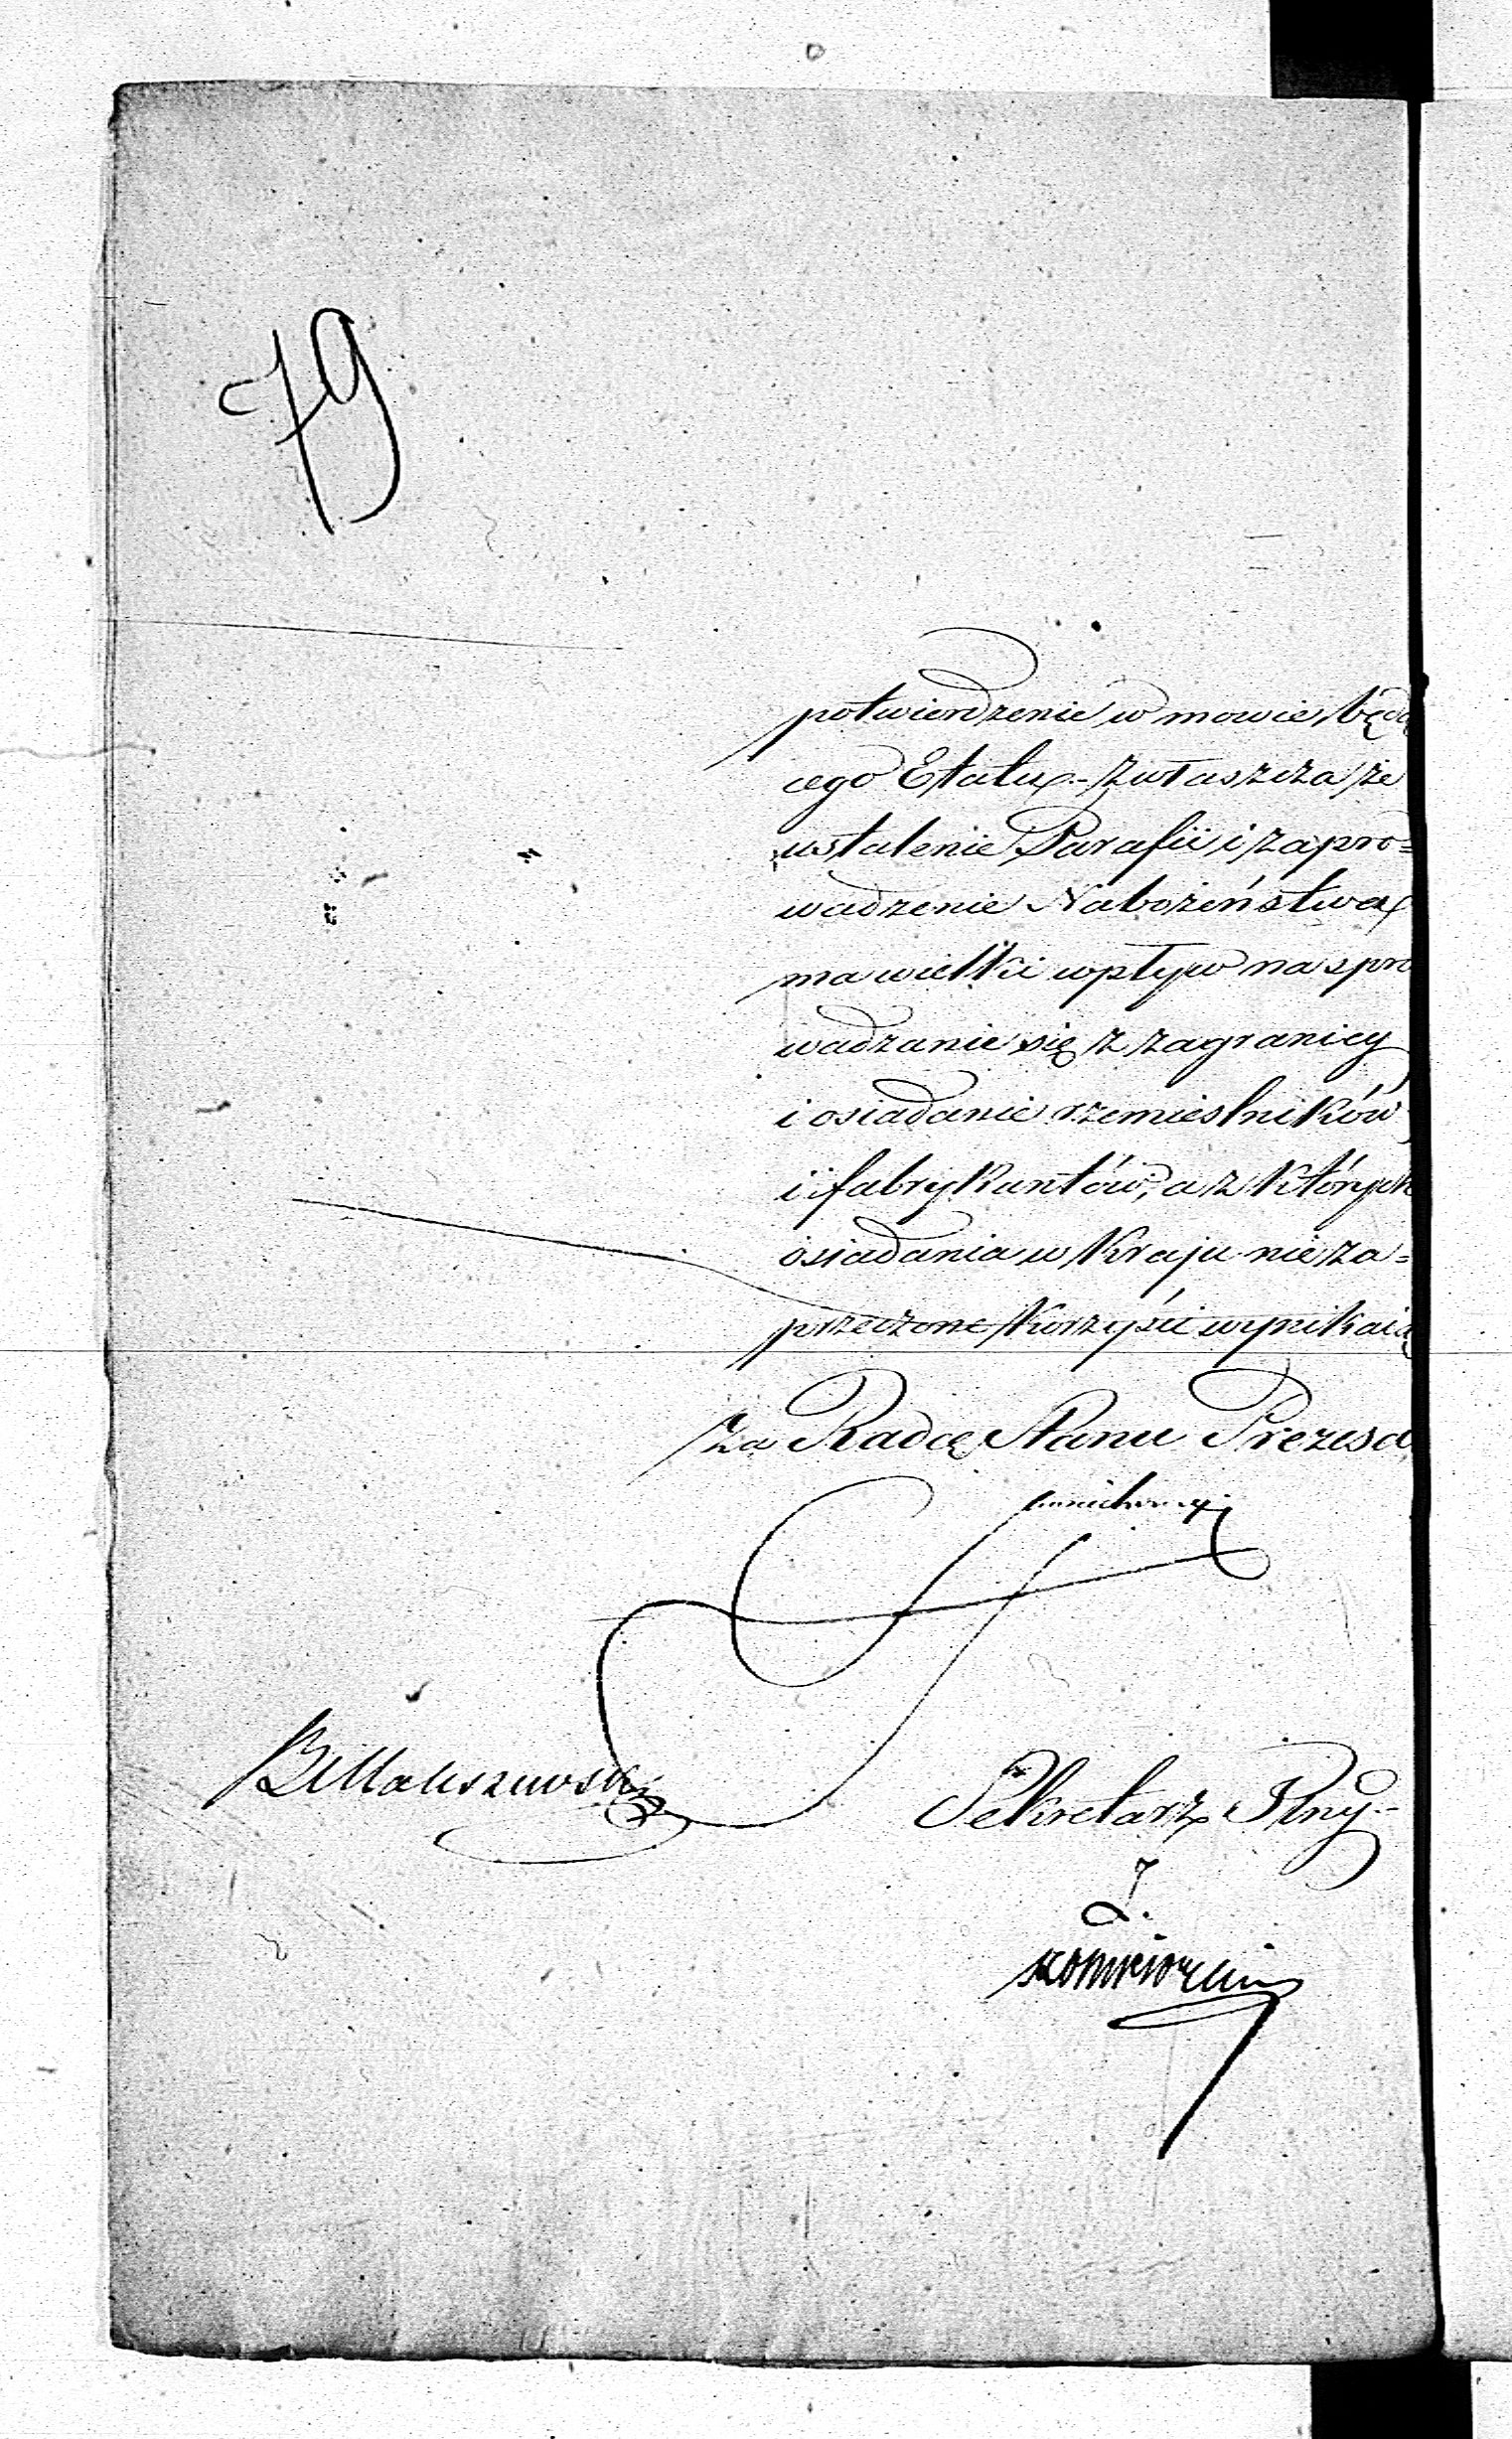 79
potwierdzenie w mowie będą
cego Etatu - zwłaszcza że
ustalenie Parafii i zapro=
wadzenie Nabożeństwa
ma wielki wpływ na spro
wadzanie się z zagranicy
i osiadanie rzemieslników
i fabrykantów, a z których
osiadania w Kraju nieza=
przeczone Korzyści wynikaią
za Radcę Stanu Prezesa
BMaliszewski
Sekretarz Jlny